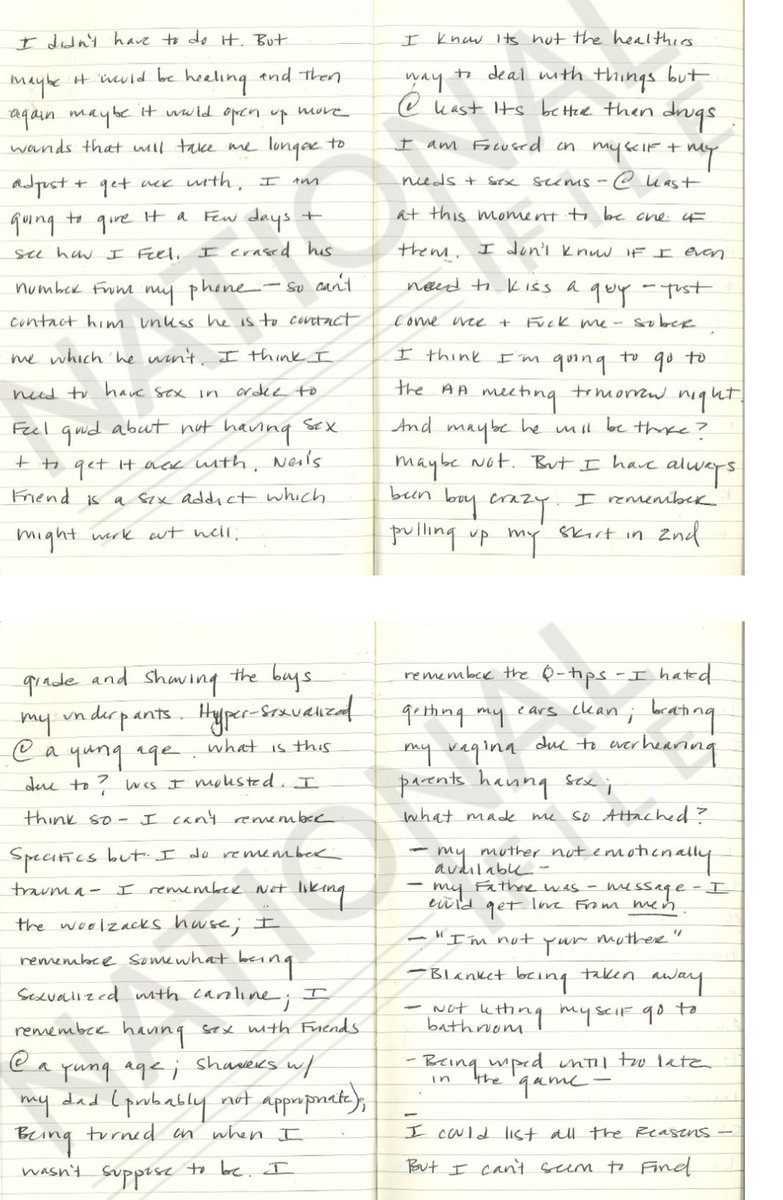 I didn't have to do it. But
maybe it would be healing and then
again maybe it would open up more
wounds that will take me longer to
adjust + get over with. I am
going to give it a few days +
see how I feel. I erased his
number from my phone - so can't
contact him unless he is to contact
me which he won't. I think I
need to have sex in order to
feel good about not having sex
+ to get it over with. Neil's
Friend is a sex addict which
might work out well.
I know its not the healthies
way to deal with things but
@ least its better than drugs
I am focused on myself + my
needs + sex seems - @ least
at this moment to be one of
them. I don't know if I even
need to kiss a guy - just
come over + Fuck me - sober.
I think I'm going to go to
the AA meeting tomorrow night.
And maybe he will be there?
maybe not. But I have always
been boy crazy. I remember
pulling up my skirt in 2nd
grade and showing the boys
my underpants. Hyper-sexualized
@ a yung age. what is this
due to? Was I molested. I
think so - I can't remember
specifics but I do remember
trauma - I remember not liking
the woolzacks house; I
remember somewhat being
sexualized with caroline; I
remember having sex with friends
@ a yung age; showers w/
my dad (probably not appropriate);
Being turned on when I
wasn't suppose to be. I
remember the Q-tips - I hated
getting my ears clean; beating
my vagina due to overhearing
parents having sex;
what made me so Attached?
- my mother not emotionally
available -
- my Father was - message - I
could get love from men
- "I'm not your mother"
- Blanket being taken away
- Not letting myself go to
bathroom
- Being wiped until too late
in the game -
-
I could list all the reasons -
But I can't seem to find
NATIONAL
FILE
NATIONAL
FILE